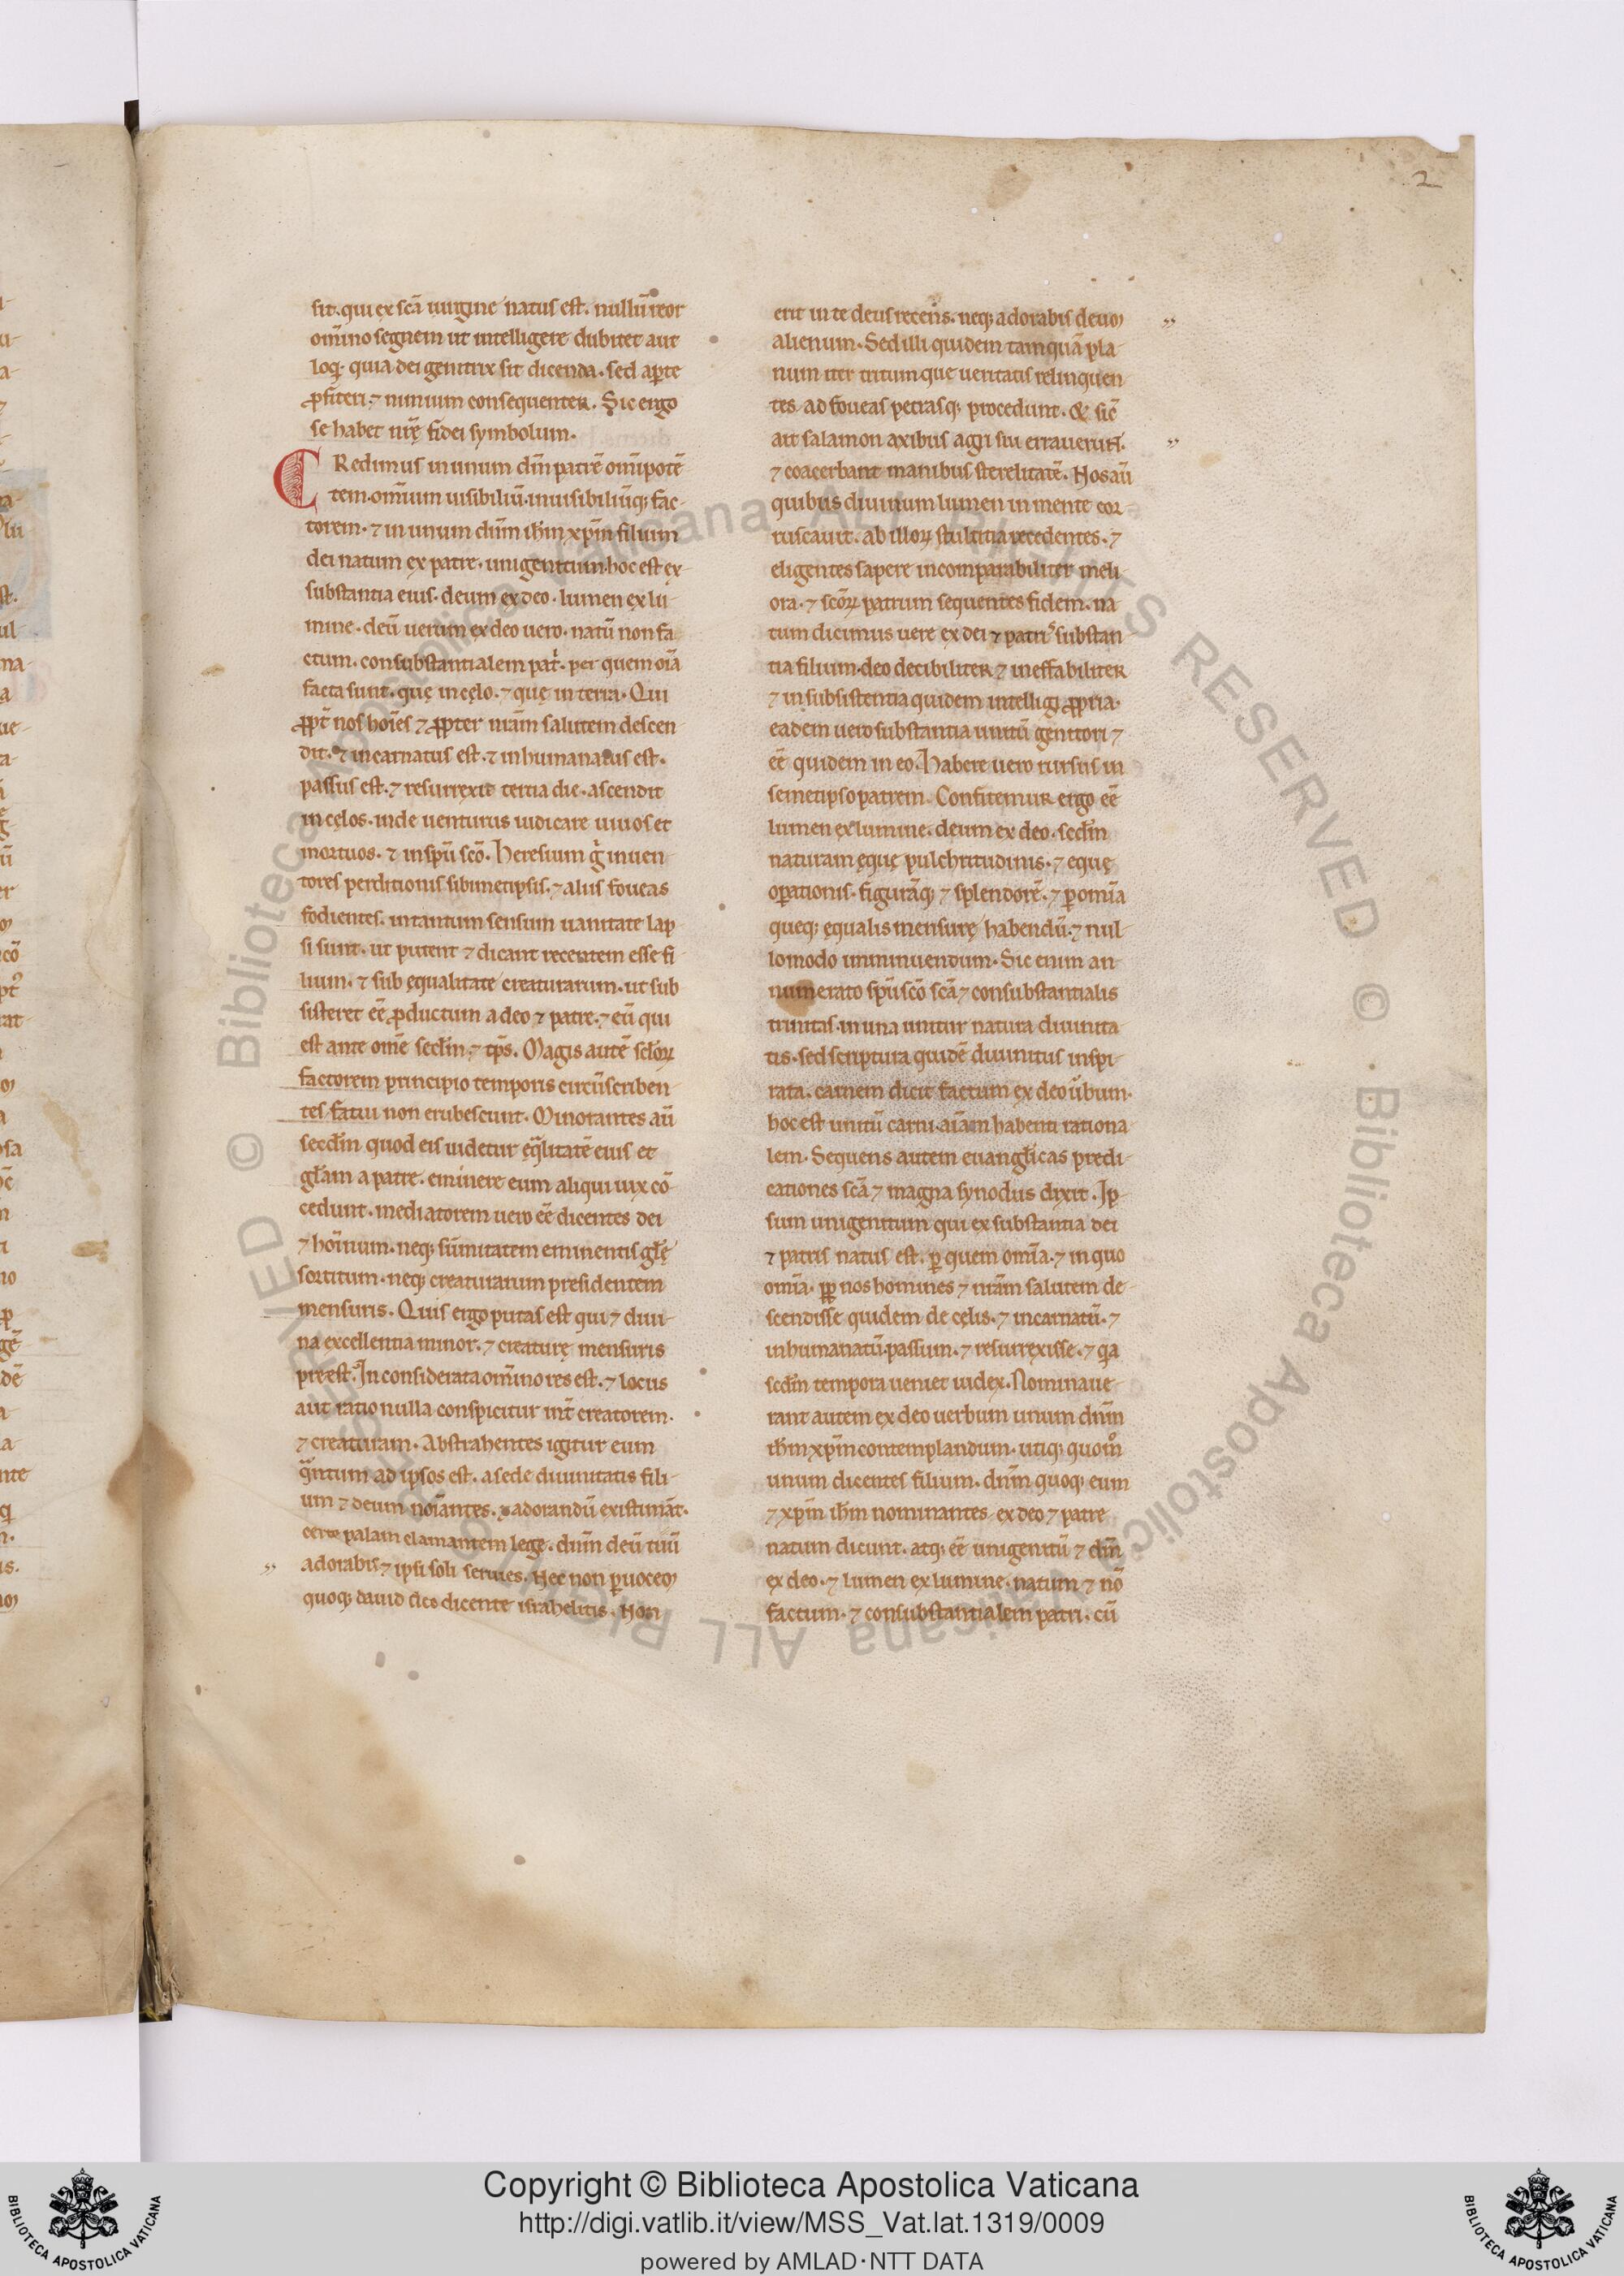 2
sit. qui ex scā uirgine natus est. nullū reor
om̄ino segnem ut intelligere dubitet aut
loq̄. quia dei genitrix sit dicenda. sed aꝑte
ꝓfiteri. ⁊ nimium consequenter. Sic ergo
se habet nrę̄ fidei symbolum.
CRedimus in unum dm̄ patrē om̄ipotē
tem. om̄ium uisibiliū. inuisibiliūq; fac-
torem. ⁊ in unum dnm̄ ihm̄ xpm̄ filium
dei natum ex patre. unigenitum. hoc est ex
substantia eius. deum ex deo. lumen ex lu
mine. deū uerum ex deo uero. natū non fa
ctum. consubstantialem pat̄. per quem oīa
facta sunt. quę in cęlo. ⁊ quę in terra. Qui
ꝓpt̄ nos hoīes ⁊ ꝓpter nrām salutem descen
dit. ⁊ incarnatus est. ⁊ inhumanatus est.
passus est. ⁊ resurrexit tertia die. ascendit
in cęlos. inde uenturus iudicare uiuos et
mortuos. ⁊ in spū scō. Heresium g̊ inuen
tores perditionis sibimetipsis. ⁊ aliis foueas
fodientes. in tantum sensum uanitate lap
si sunt. ut putent ⁊ dicant recentem esse fi
lium. ⁊ sub ęqualitate creaturarum. ut sub
sisteret eē ꝓductum a deo ⁊ patre. ⁊ eū qui
est ante om̄e seclm̄. ⁊ tp̄s. Magis autē sclōꝝ
factorem principio temporis circūscriben
tes fatui non erubescunt. Minorantes aū
secdm̄ quod eis uidetur eq̄litatē eius et
glām a patre. eminere eum aliqui uix cō
cedunt. mediatorem uero eē dicentes dei
⁊ hoīnum. neq; sūmitatem eminentis glę̄
sortitum. neq; creaturarum presidentem
mensuris. Quis ergo putas est qui ⁊ diui
na excellentia minor. ⁊ creaturę mensuris
preest. Inconsiderata om̄ino res est. ⁊ locus
aut ratio nulla conspicitur int̄ creatorem.
⁊ creaturam. Abstrahentes igitur eum
q̄ntum ad ipsos est. a sede diuinitatis fili-
um ⁊ deum noīantes. ⁊ adorandū existimāt.
certe palam clamantem lege. dnm̄ deū tuū
„ adorabis ⁊ ipsi soli seruies. Nec non ꝑ uocem
quoq; dauid deo dicente israhelitis. Non
erit in te deus recens. neq; adorabis deum „
alienum. Sed illi quidem tamquā pla
num iter tritumque ueritatis relinquen
tes ad foueas petrasq; procedunt. & sic̄
ait salamon axibus agri sui errauerunt. „
⁊ coacerbant manibus sterelitatē. Nos aū
quibus diuinum lumen in mente cor
ruscauit. ab illoꝝ stultitia recedentes. ⁊
eligentes sapere incomparabiliter meli
ora. ⁊ scōꝝ patrum sequentes fidem. na
tum dicimus uere ex dei ⁊ patris substan
tia filium. deo decibiliter ⁊ ineffabiliter
⁊ in subsistentia quidem intelligi ꝓpria.
eadem uero substantia unitū genitori ⁊
eē quidem in eo. Habere uero rursus in
semetipso patrem. Confitemur ergo eē
lumen ex lumine. deum ex deo. secdm̄
naturam ęquę pulchritudinis. ⁊ equę
oꝑationis. figurāq; ⁊ splendorē. ⁊ ꝑ omīa
queq; ęqualis mensurę habendū. ⁊ nul
lomodo imminuendum. Sic enim an
numerato spū scō scā ⁊ consubstantialis
trinitas. in una unitur natura diuinita
tis. sed scriptura quidē diuinitus inspi-
rata. carnem dicit factum ex deo ūbum.
hoc est unitū carni. aīam habenti rationa
lem. Sequens autem euanglicas predi
cationes scā ⁊ magna synodus dixit. Ip
sum unigenitum qui ex substantia dei
⁊ patris natus est. ꝑ quem omīa. ⁊ in quo
omīa. ꝓp̄ nos homines ⁊ nrām salutem de
scendisse quidem de cęlis. ⁊ incarnatū. ⁊
inhumanatū. passum. ⁊ resurrexisse. ⁊ q̄a
scdm̄ tempora ueniet iudex. Nominaue
rant autem ex deo uerbum unum dnm̄
ihm̄ xpm̄ contemplandum. utiq; quom̊
unum dicentes filium. dnm̄ quoq; eum
⁊ xpm̄ ihm̄ nominantes ex deo ⁊ patre
natum dicunt. atq; eē unigenitū ⁊ dm̄
ex deo. ⁊ lumen ex lumine. natum ⁊ nō
factum. ⁊ consubstantialem patri. cū
© Biblioteca Apostolica Vaticana ALL RIGHTS RESERVED © Biblioteca Apostolica Vaticana ALL RIGHTS RESERVED
Copyright © Biblioteca Apostolica Vaticana
http://digi.vatlib.it/view/MSS_Vat.lat.1319/0009
powered by AMLAD·NTT DATA
BIBLIOTECA APOSTOLICA VATICANA
BIBLIOTECA APOSTOLICA VATICANA